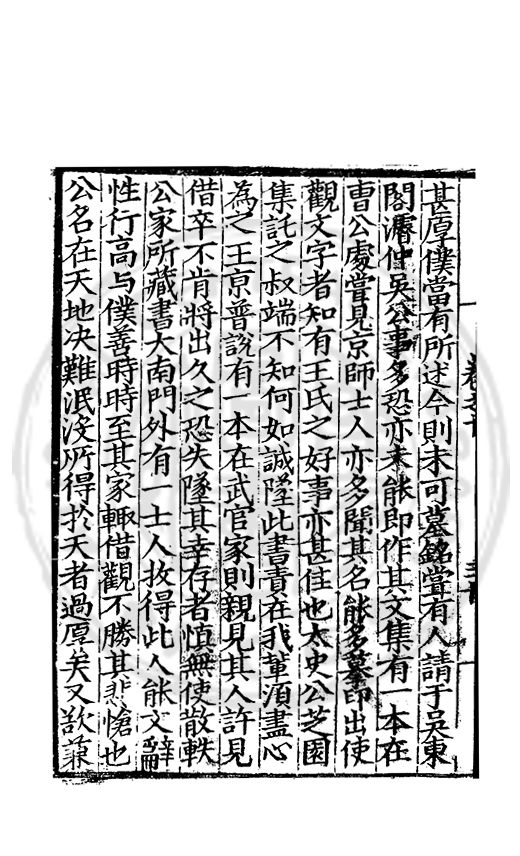 甚厚僕當有所述今則未可墓銘嘗有人請于吳東
閣濬仲吳公事多恐亦未能即作其文集有一本在
曹公處嘗見京師士人亦多聞其名能多摹印出使
觀文字者知有王氏之好事亦甚佳也太史公芝園
集託之叔端不知何如誠墜此書責在我輩須盡心
為之王京普說有一本在武官家則親見其人許見
借卒不肯將出久之恐失墜其幸存者慎無使散軼
公家所藏書大南門外有一士人收得此人能文辭
性行高与僕善時時至其家輙借觀不勝其悲愴也
公名在天地决難泯没所得於天者過厚矣又欲